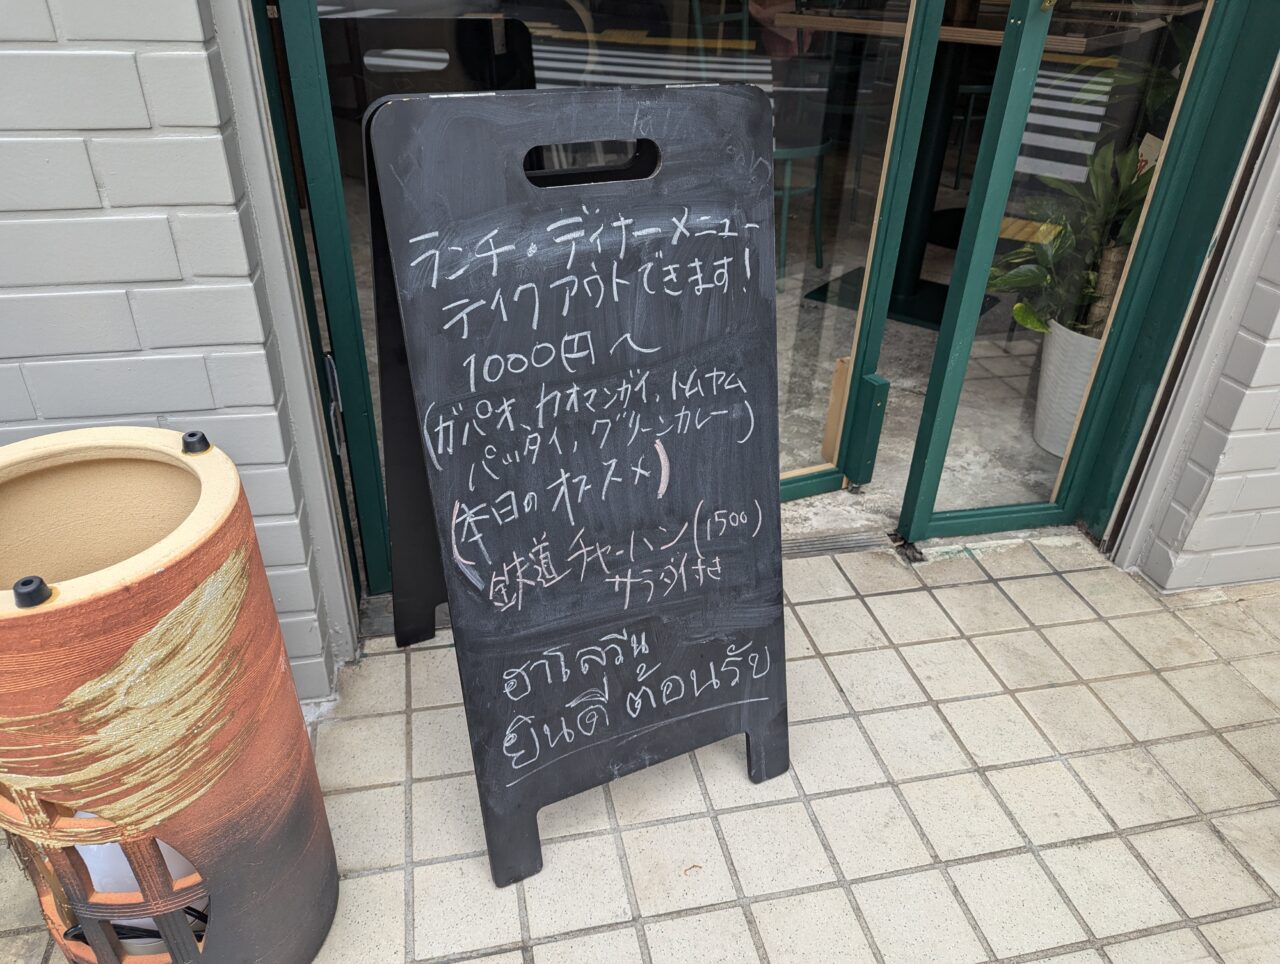 ランチ・ディナーメニュー
テイクアウトできます!
1000円〜
(ガパオ、カオマンガイ、トムヤム
パッタイ、グリーンカレー)
(本日のオススメ)
鉄道チャーハン(1500)
サラダ付き
ฮาโลวีน
ยินดีต้อนรับ